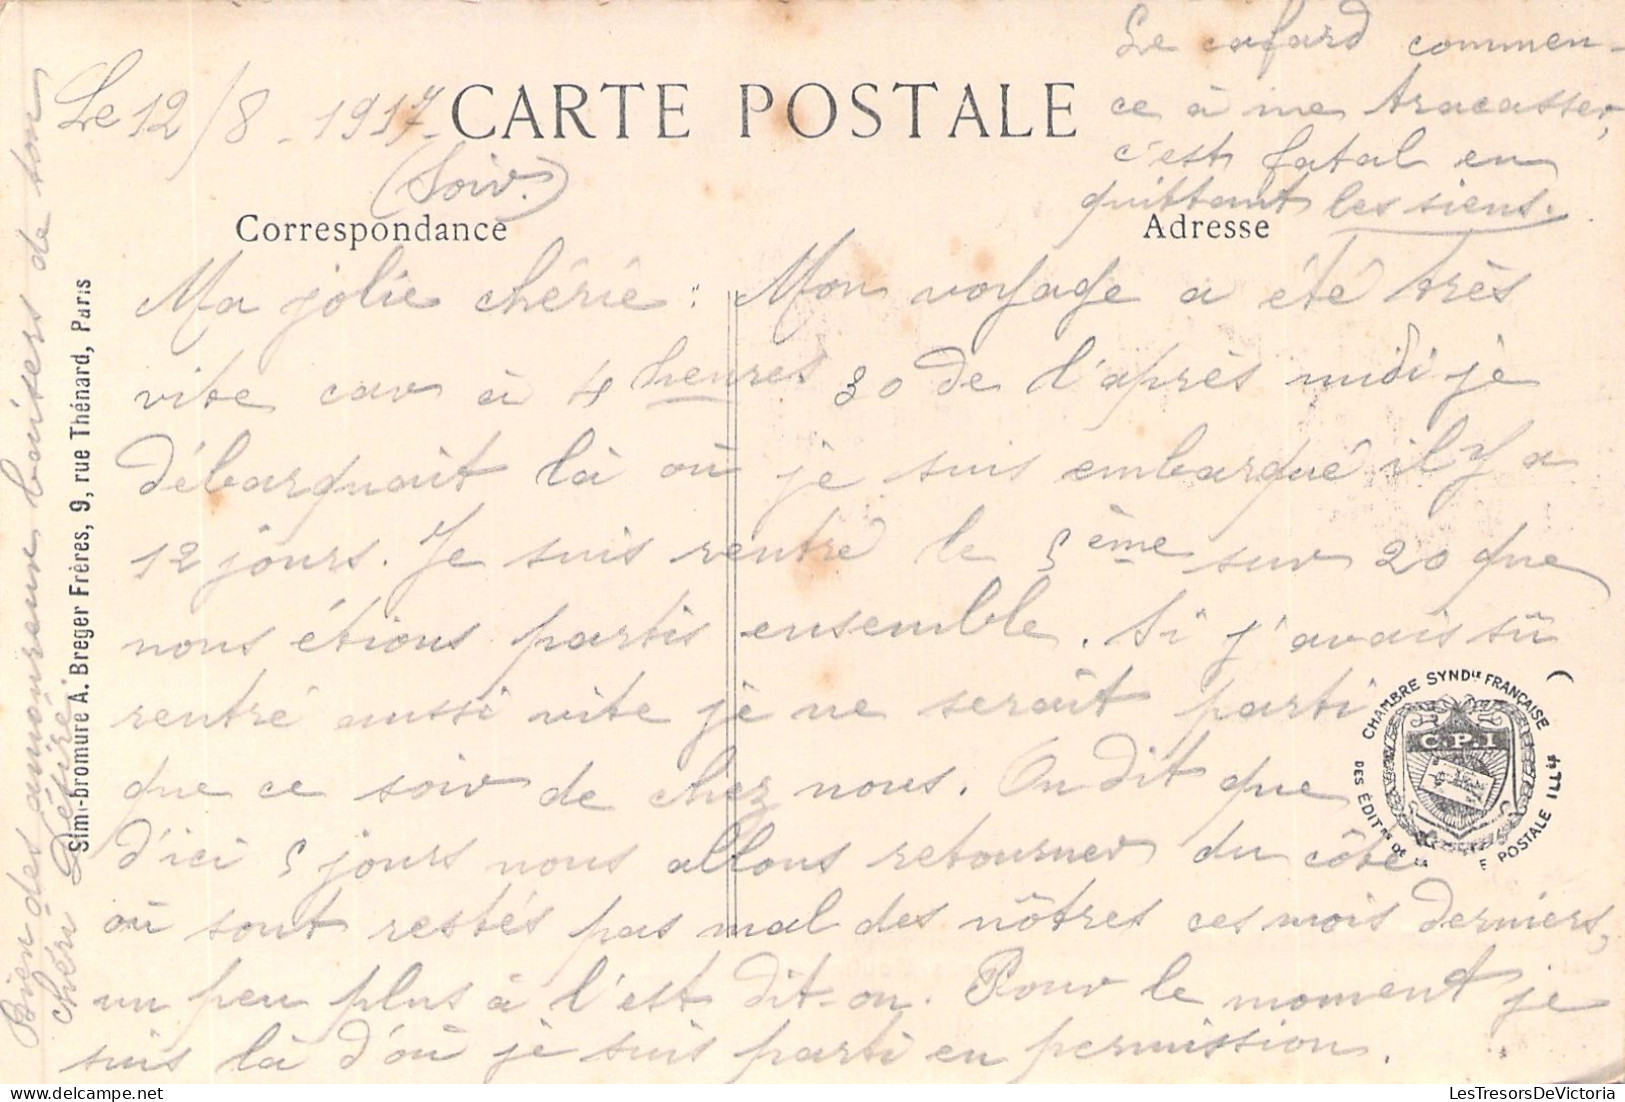 Le 12/8 - 1917 -
(Soir.)
CARTE POSTALE
Correspondance
Adresse
Ma jolie chérie : Mon voyage a été très
vite car à 4 heures 30 de l'après midi je
débarquait là où je suis embarqué il y a
12 jours. Je suis rentré le 5ème sur 20 que
nous étions partis ensemble. Si j'avais sû
rentré aussi vite je ne serait parti
que ce soir de chez nous. On dit que
d'ici 5 jours nous allons retourner du côté
où sont restés pas mal des nôtres ces mois derniers,
un peu plus à l'est dit-on. Pour le moment je
suis là d'où je suis parti en permission.
Le cafard commen-
ce à me tracasser,
c'est fatal en
quittant les siens.
Bien des amoureux baisers de ton
chéri Désiré.
Simi-bromure A. Breger Frères, 9, rue Thénard, Paris
CHAMBRE SYNDle FRANÇAISE
DES ÉDIT DE LA E POSTALE ILLée
C.P.I
LesTresorsDeVictoria